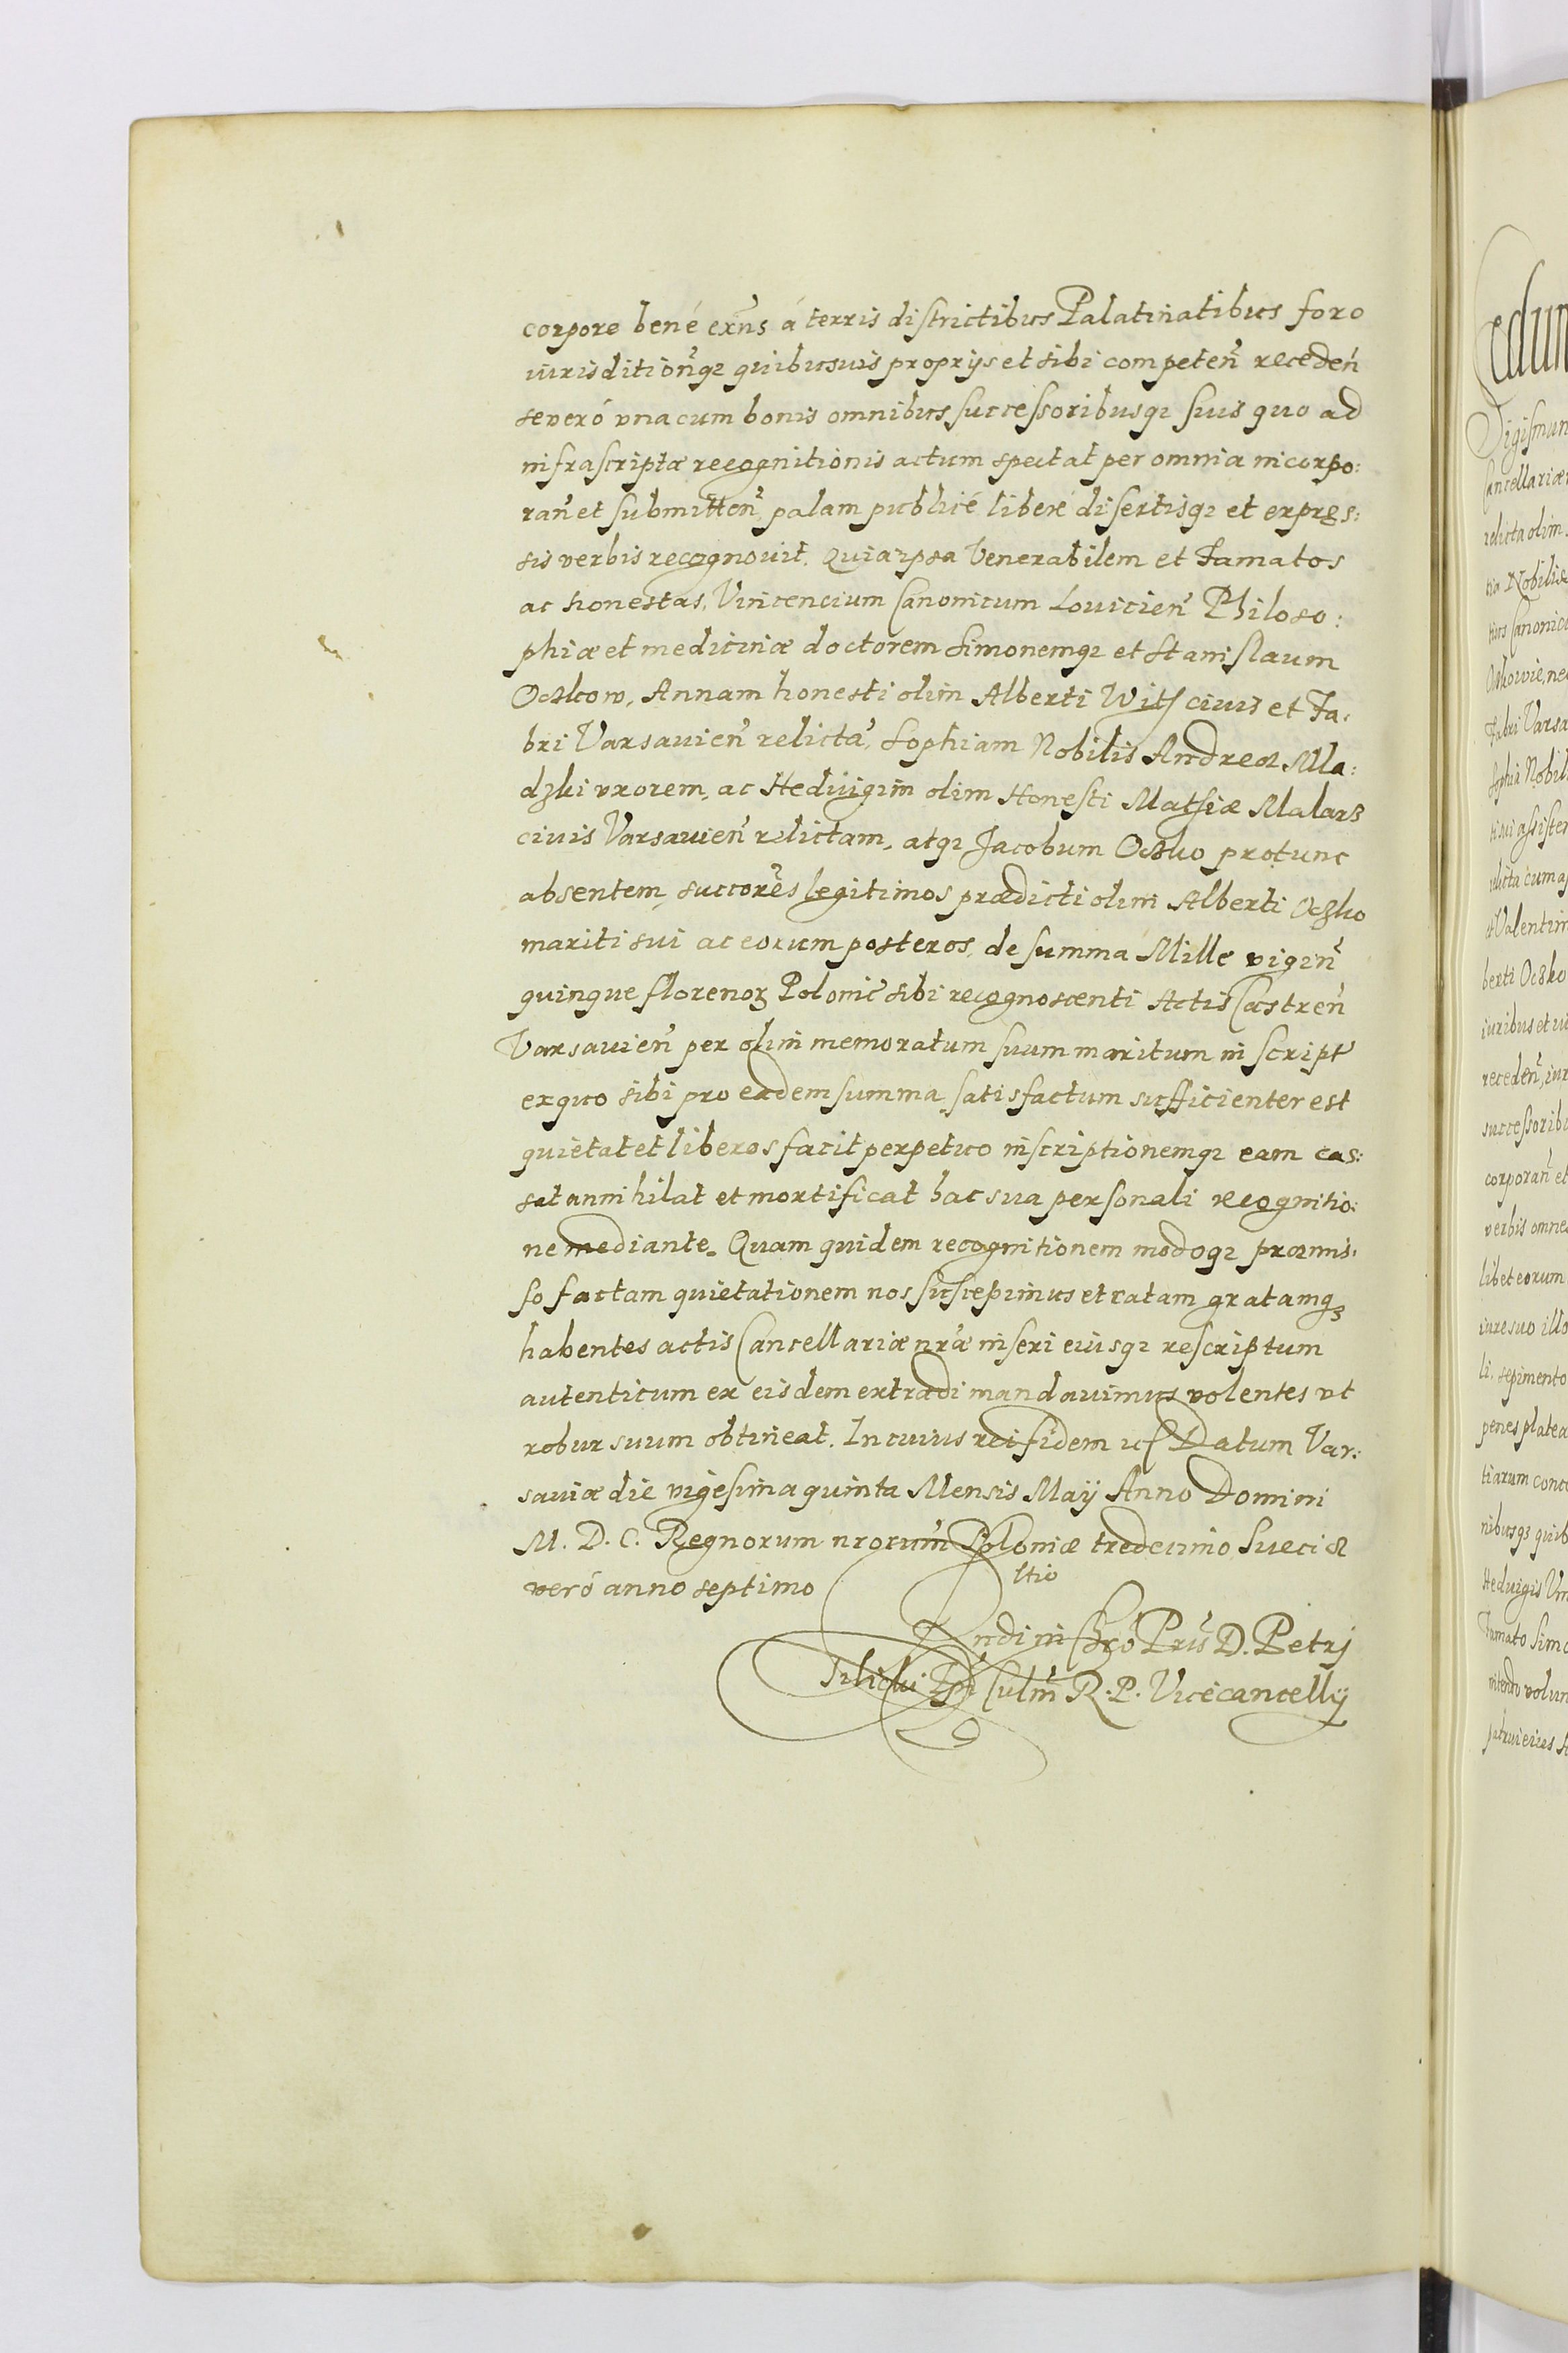 corpore bené exñs á terris districtibus Palatinatibus foro
iurisditionq́; quibusuis proprijs et sibi competeñ receden̄
se veró vna cum bonis omnibus successoribusq; suis quo ad
infrascriptæ recognitionis actum spectat per omnia incorpo:
rañ et submitteñ, palam publicé liberé disertisq; et expres:
sis verbis recognouit. Quia ipsa Venerabilem et Famatos
ac honestas, Vincencium Canonicum Louicieñ Philoso:
phiæ et medicinæ doctorem Simonemq; et Stanislaum
Oczkow, Annam honesti olim Alberti Wits ciuis et Fa:
bri Varsauieñ relicta᷈, Sophiam Nobilis Andreæ Mla:
dzki vxorem, ac Hedvigim olim Honesti Mathiæ Malarz
ciuis Varsauieñ relictam, atq; Jacobum Oczko protunc
absentem, succores̄ legitimos prædicti olim Alberti Oczko
mariti sui ac eorum posteros, de summa Mille vigin̄
quinque florenoꝝ Polonic̄ sibi recognoscenti Actis Castreñ
Varsauieñ per olim memoratum suum maritum inscript̄
ex quo sibi pro eadem summa satisfactum sufficienter est
quietat et liberos facit perpetuo inscriptionemq; eam cas:
sat annihilat et mortificat hac sua personali recognitio:
ne mediante. Quam quidem recognitionem modoq; præmis:
so factam quietationem nos suscepimus et ratam gratamqꝫ
habentes actis Cancellariæ nr̄æ inseri eiusq; rescriptum
autenticum ex eisdem extradi mandauimus volentes vt
robur suum obtineat. In cuius rei fidem Datum Var:
sauiæ die vigesima quinta Mensis Maÿ Anno Domini
M. D. C. Regnorum nrorum̄ Poloniæ tredecimo Sueciæ
veró anno septimo
ltio
Rndi in Chrō Pris̄ D. Petri
Tilicki Epī Culm̄ R. P. Vicecancellÿ
edum
Sigismun
Cancellariæ
relicta olim
tia Nobilis
tius Canonic
Oczkowie, nec
Fabri Varsa
Sophia Nobil
tini assisten
relicta cum a
et Valentin
berti Oczko
iuribus et iu
recedeñ, iur
successoribu
corporañ et
verbis omnes
libet eorum
iure suo illo
li, sepimento
penes platea
tiarum conce
nibusqꝫ quib
Heduigis Vin
Famato Simo
volun